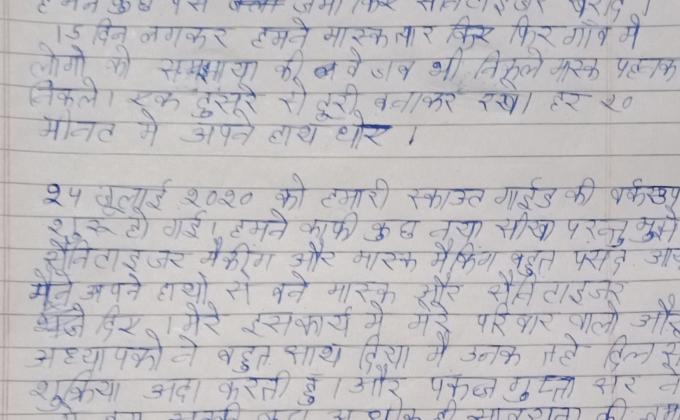 हमने कुछ पैसे जमा किए सैनिटाइजर खरीदे।
15 दिन लगकर हमने मास्क तैयार किए फिर गाँव में
लोगो को समझाया की वे जब भी निकले मास्क पहनक
निकले। एक दुसरे से दुरी बनाकर रखा हर २०
मीनट मे अपने हाथ धोए।
२५ जूलाई २०२० को हमारी स्काउट गाईड की वर्कशॉप
शुरू हो गई। हमने काफी कुछ नया सीखा परन्तु मुझे
सैनिटाइजर मैकींग और मास्क मैकिंग बहुत पसंद आय
मैने अपने हाथो से बने मास्क और सैनिटाइजर
दिए। मेरे इसकार्य मे मेरे परिवार वालो और
अध्यापको ने बहुत साथ दिया मै उनक तहे दिल से
शुक्रिया अदा करती हुँ। और पंकज गुप्ता सर ने